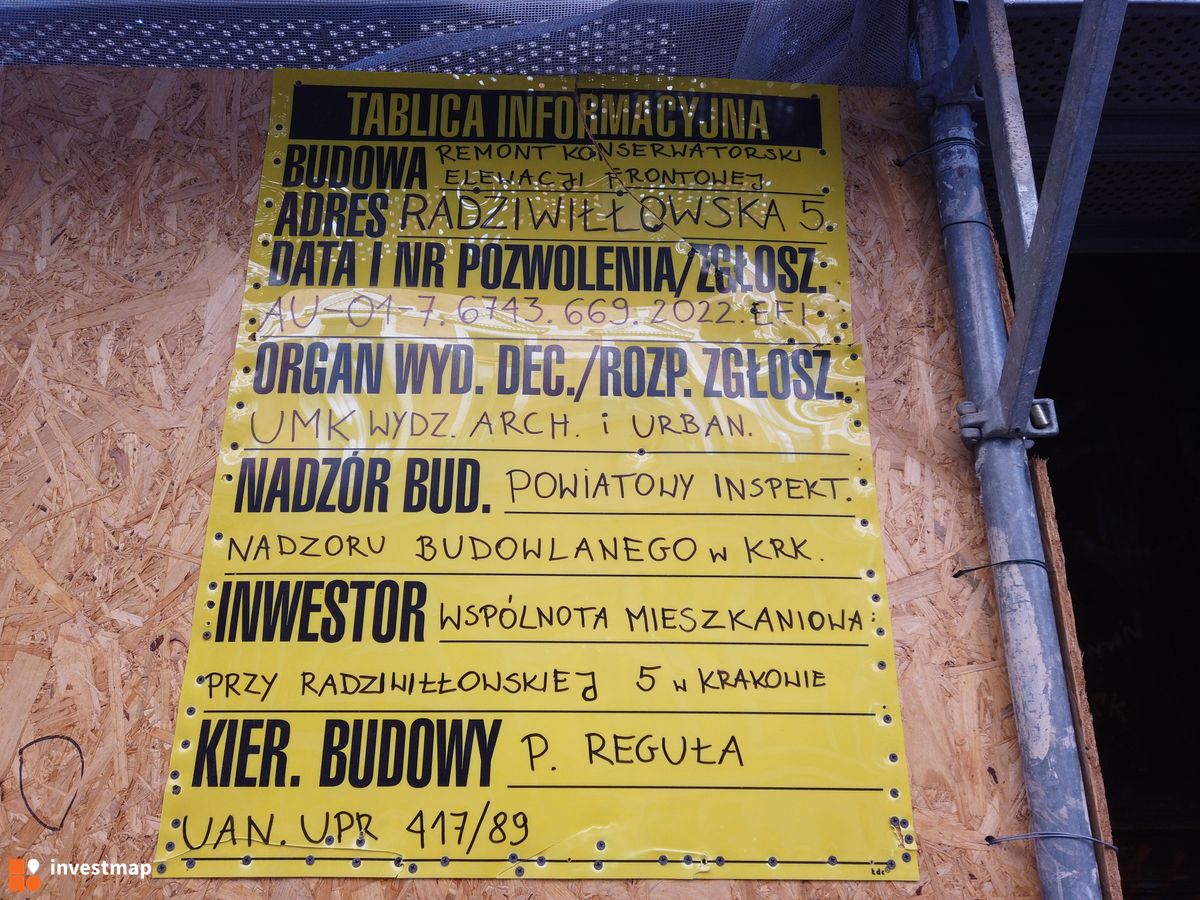 TABLICA INFORMACYJNA
BUDOWA REMONT KONSERWATORSKI
ELEWACJI FRONTOWEJ
ADRES RADZIWIŁŁOWSKA 5
DATA I NR POZWOLENIA/ZGŁOSZ.
AU-01-7.6743.669.2022.EFI
ORGAN WYD. DEC./ROZP. ZGŁOSZ.
UMK WYDZ. ARCH. i URBAN.
NADZÓR BUD. POWIATOWY INSPEKT.
NADZORU BUDOWLANEGO w KRK.
INWESTOR WSPÓLNOTA MIESZKANIOWA
PRZY RADZIWIŁŁOWSKIEJ 5 w KRAKOWIE
KIER. BUDOWY P. REGUŁA
UAN. UPR 417/89
tdc
investmap